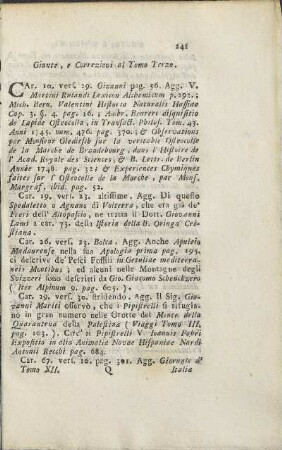 241
Giunte, e Correzioni al Tomo Terzo.
CAr. 10. vers. 19. Giovanni pag. 36. Agg. V.
Martini Rulandi Lexicon Alchemicum p. 292.;
Mich. Bern. Valentini Historia Naturalis Hassiae
Cap. 3. §. 4. pag. 16.; Ambr. Beureri disquisitio
de Lapide Osteocolla, in Transact. Philos. Tom. 43.
Anno 1745. num. 476. pag. 370.; & Observations
par Monsieur Gleditsch sur la veritable Osteocolle
de la Marche de Brandebourg, dans l' Histoire de
l' Acad. Royale des Sciences, & B. Lettr. de Berlin
Année 1748. pag. 32; & Experiences Chymiques
faites sur l' Osteocolle de la Marche, par Mons.
Margraf, ibid. pag. 52.
Car. 19. vers. 23. altissime. Agg. Di questo
Spedaletto o Agnano di Volterra, che era già de'
Frati dell' Altopascio, ne tratta il Dott. Giovanni
Lami a car. 73. della Istoria della B. Oringa Cri-
stiana.
Car. 26. vers. 23. Bolca. Agg. Anche Apuleio
Madaurense nella sua Apologia prima pag. 195.
ci descrive de' Pesci Fossili in Getuliae mediterra-
neis Montibus; ed alcuni nelle Montagne degli
Svizzeri sono descritti da Gio. Giacomo Scheuchzero
( Iter Alpinum 9. pag. 603. ).
Car. 29. vers. 30. stridendo. Agg. Il Sig. Gio-
vanni Mariti osservò, che i Pipistrelli si rifugia-
no in gran numero nelle Grotte del Monte della
Quarantena della Palestina ( Viaggi Tomo III.
pag. ). Circ' ai Pipistrelli V. Joannis Fabri
Expositio in alia Animalia Novae Hispaniae Nardi
Antonii Recchi pag. 684.
Car. 67. vers. 10. pag. 301. Agg. Giornale d'
Tomo XII. Q Italia